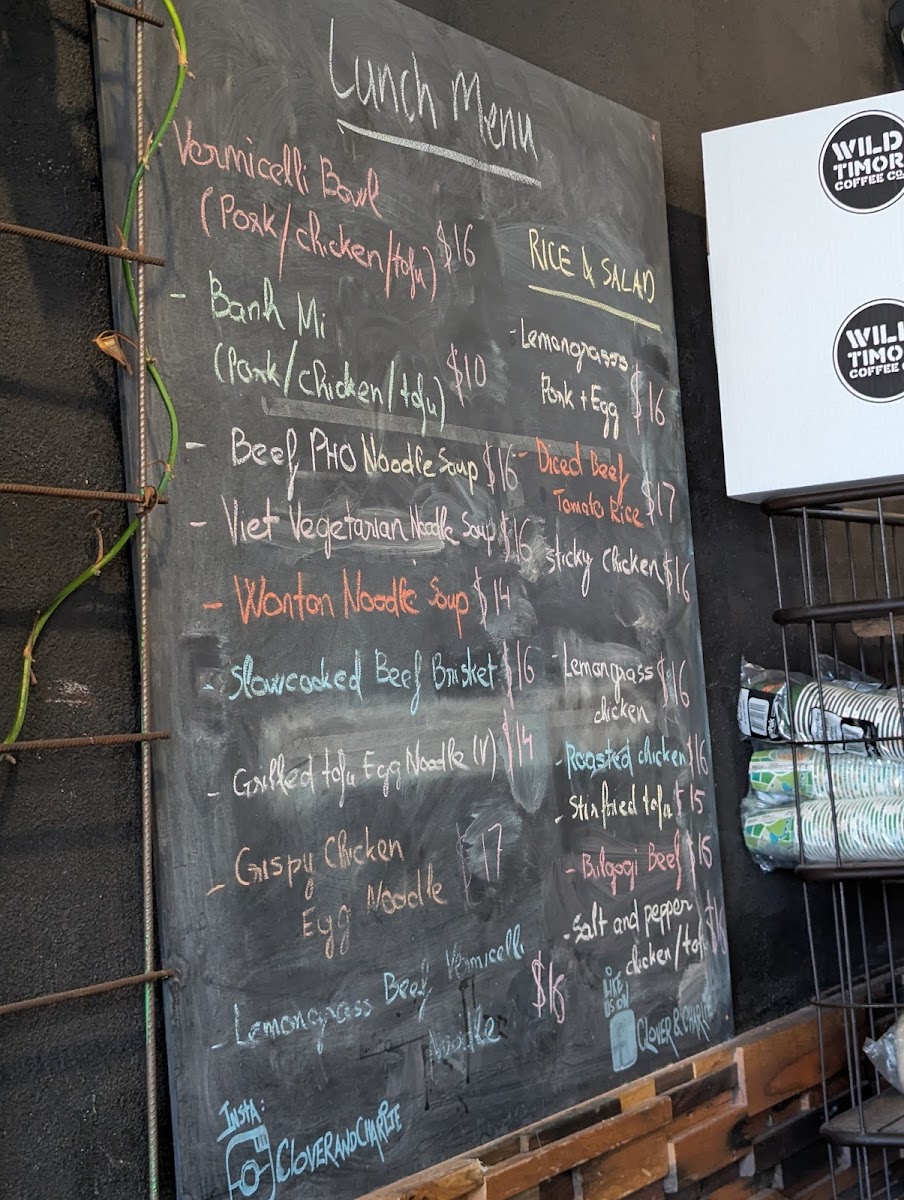 Lunch Menu
Vermicelli Bowl
(Pork/chicken/tofu) $16
- Banh Mi
(Pork/chicken/tofu) $10
- Beef PHO Noodle Soup $16
- Viet Vegetarian Noodle Soup $16
- Wonton Noodle Soup $14
- Slowcooked Beef Brisket $16
- Grilled tofu Egg Noodle (V) $14
- Crispy Chicken
Egg Noodle $17
- Lemongrass Beef Vermicelli
Noodle
RICE & SALAD
- Lemongrasss
Pork + Egg $16
- Diced Beef
Tomato Rice $17
sticky chicken $16
- Lemongrass
chicken $16
- Roasted chicken $16
- Stirfried tofu $15
- Bulgogi Beef $16
- Salt and pepper
chicken/tofu
LIKE
US ON
CLOVER&CHARLIE
INSTA:
CLOVERANDCHARLIE
WILD
TIMOR
COFFEE CO.
WILD
TIMO
COFFEE